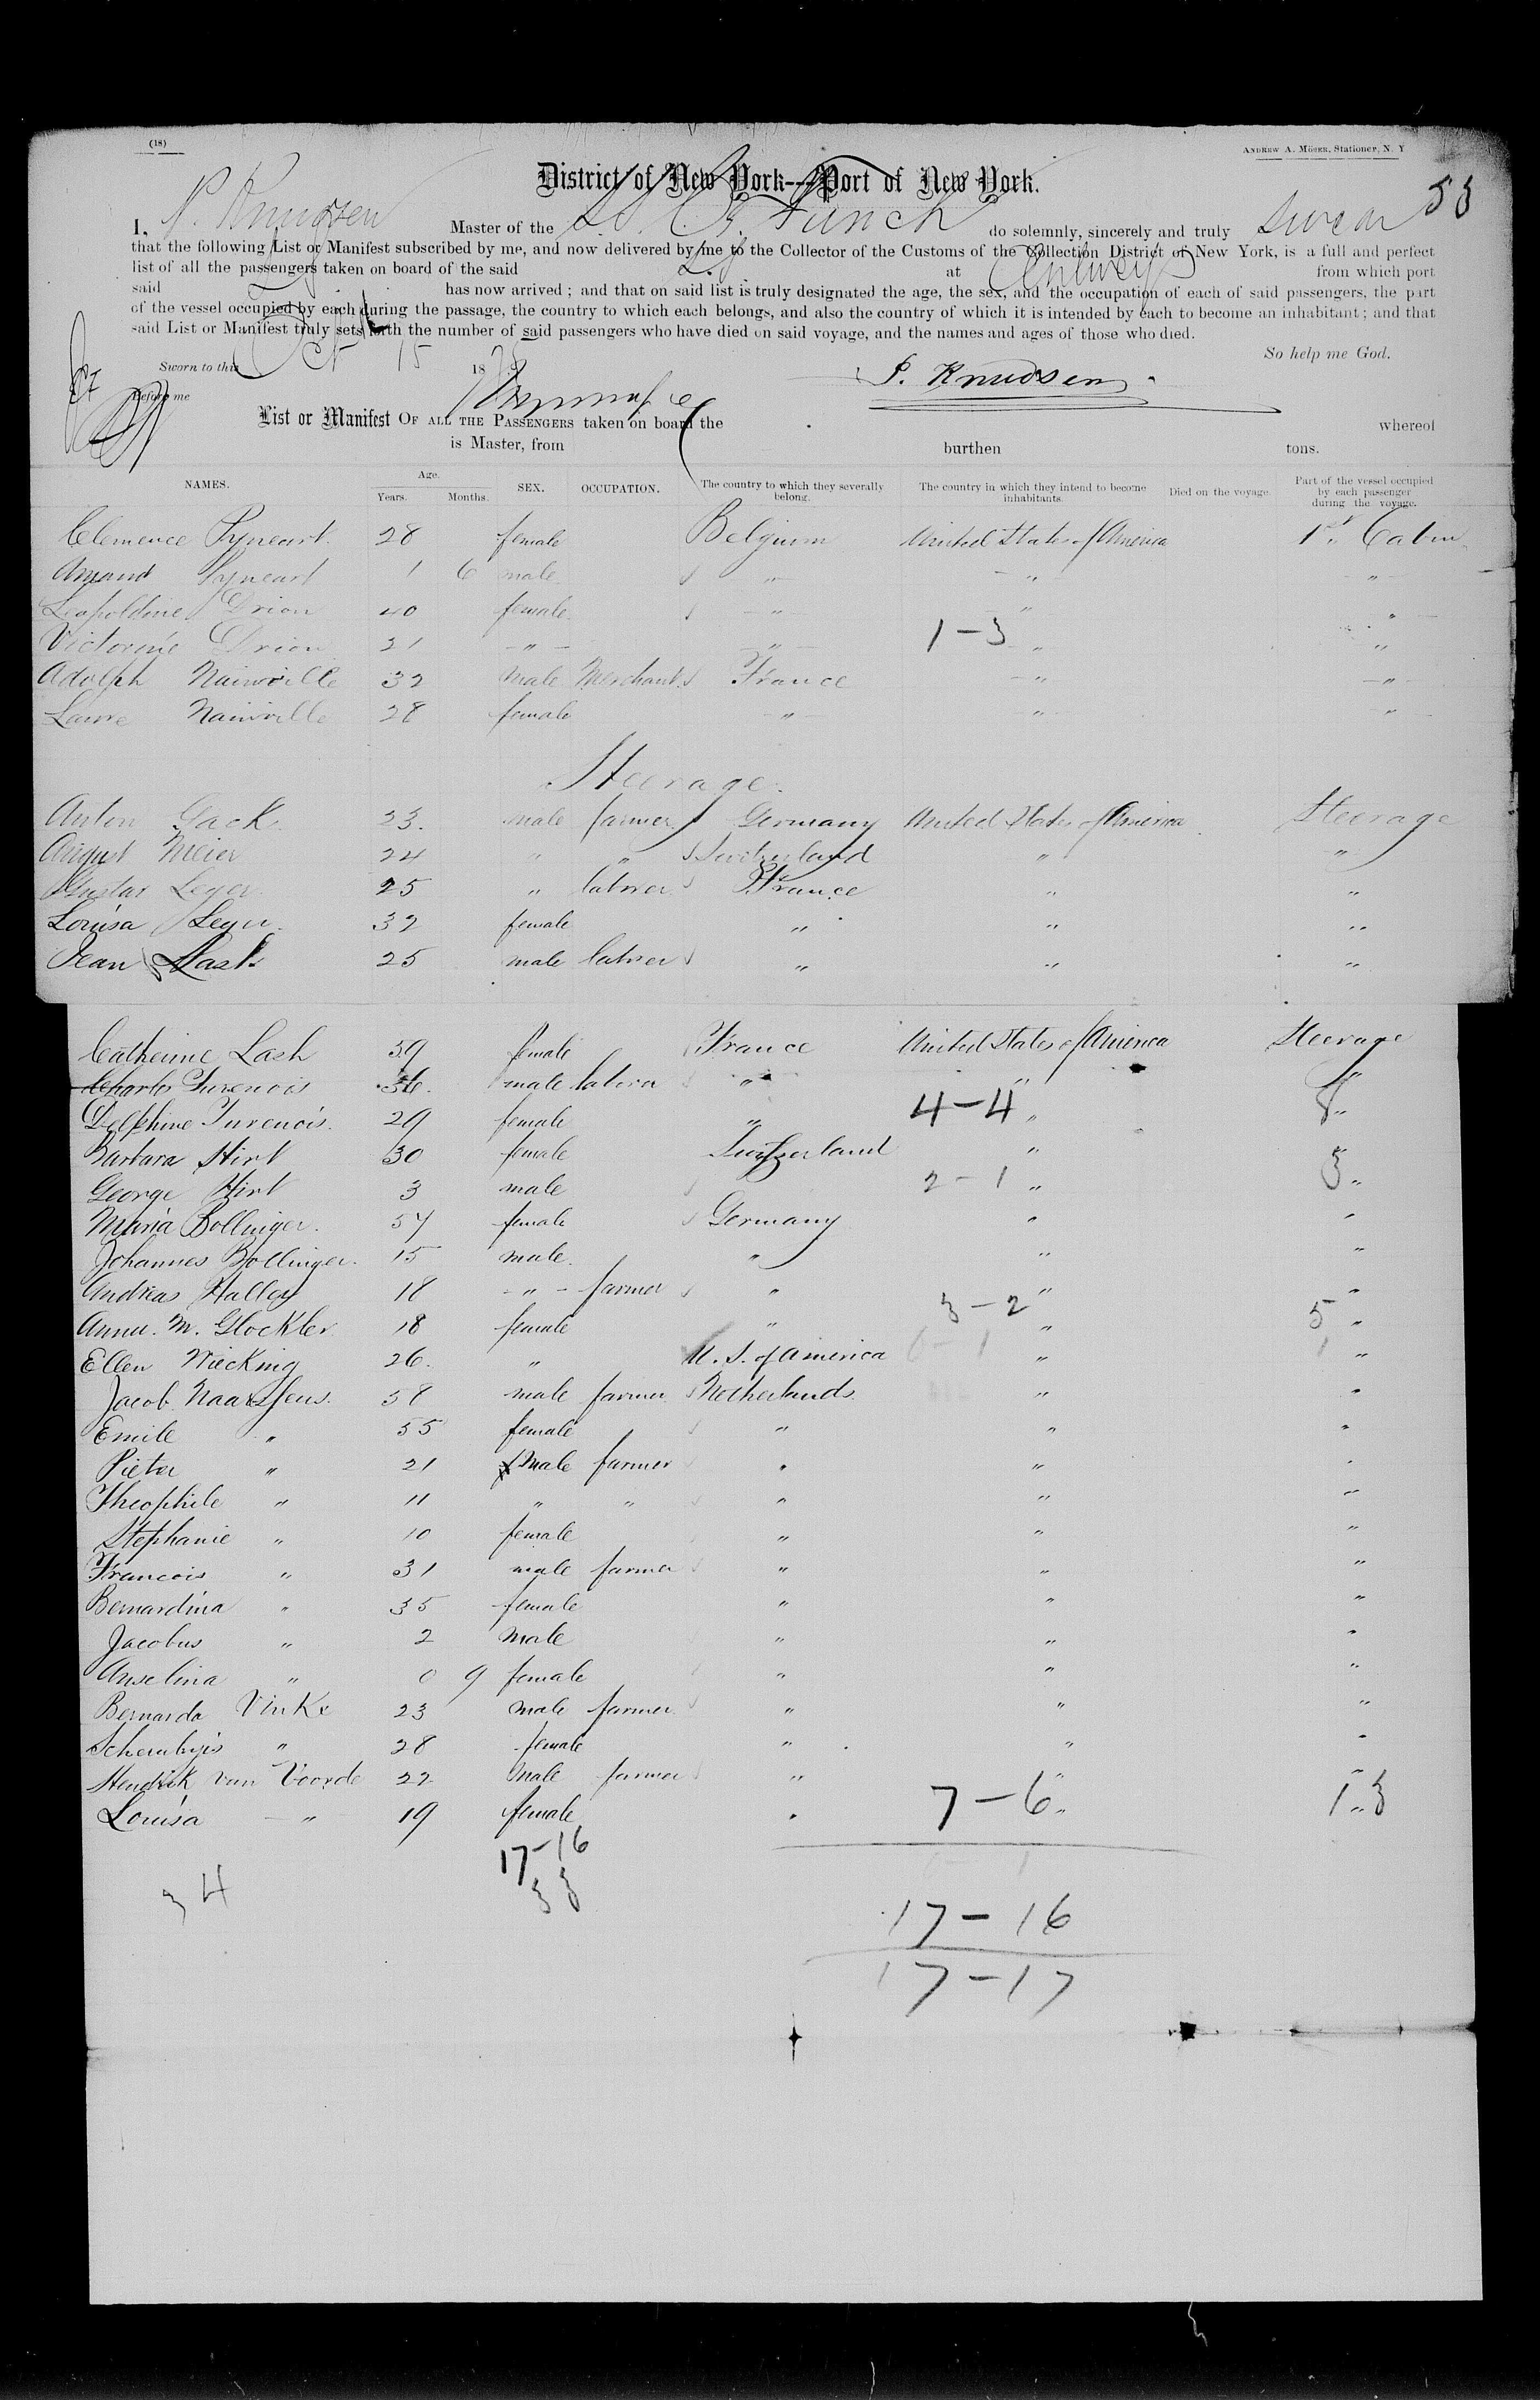 (18)
ANDREW A. MÖSER, Stationer, N. Y
District of New York—Port of New York.
55
I, P. Knudsen Master of the S.S. C. F. Funch do solemnly, sincerely and truly swear
that the following List or Manifest subscribed by me, and now delivered by me to the Collector of the Customs of the Collection District of New York, is a full and perfect
list of all the passengers taken on board of the said at Antwerp from which port
said has now arrived; and that on said list is truly designated the age, the sex, and the occupation of each of said passengers, the part
of the vessel occupied by each during the passage, the country to which each belongs, and also the country of which it is intended by each to become an inhabitant; and that
said List or Manifest truly sets forth the number of said passengers who have died on said voyage, and the names and ages of those who died.
So help me God.
Sworn to this Oct 15 187
P. Knudsen
Before me
List or Manifest OF ALL THE PASSENGERS taken on board the whereof
is Master, from burthen tons.
NAMES. Age. Years. Months. SEX. OCCUPATION. The country to which they severally belong. The country in which they intend to become inhabitants. Died on the voyage. Part of the vessel occupied by each passenger during the voyage.
Clemence Ryneart 28 female Belgium United States of America 1st Cabin
Amand Ryneart 1 6 male " " "
Leopoldine Drion 40 female " " "
Victorine Drion 21 " " " "
1-3
Adolph Nainville 32 male Merchant France " "
Laure Nainville 28 female " " "
Steerage.
Anton Gack 23. male farmer Germany United States of America Steerage
August Meier 24 " " Switzerland " "
Gustav Leyer 25 " laborer France " "
Louisa Leyer 32 female " " "
Jean Lash 25 male laborer " " "
Catherine Lash 39 female France United States of America Steerage
Charles Turenois 36. male laborer " " "
Delphine Turenois. 29 female " 4-4 " 8 "
Barbara Hirt 30 female Switzerland " "
George Hirt 3 male 2-1 " 3 "
Maria Bollinger. 54 female Germany " "
Johannes Bollinger. 15 male. " " "
Andreas Halley 18 " farmer " " "
Anna. M. Glockler 18 female " 3-2 " 5 "
Ellen Wiecking 26. " U. S. of America 0-1 " 1 "
Jacob Naarssens. 58 male farmer Netherlands " "
Emile " 55 female " " "
Pieter " 21 male farmer " " "
Theophile " 11 " " " " "
Stephanie " 10 female " " "
Francois " 31 male farmer " " "
Bernardina " 35 female " " "
Jacobus " 2 male " " "
Anselina " 0 9 female " " "
Bernardo Vinke 23 male farmer " " "
" 28 female " " "
Hendrik van Voorde 22 male farmer " " "
Louisa " 19 female " 7-6 " 13
17-16
34
33
17-16
17-17